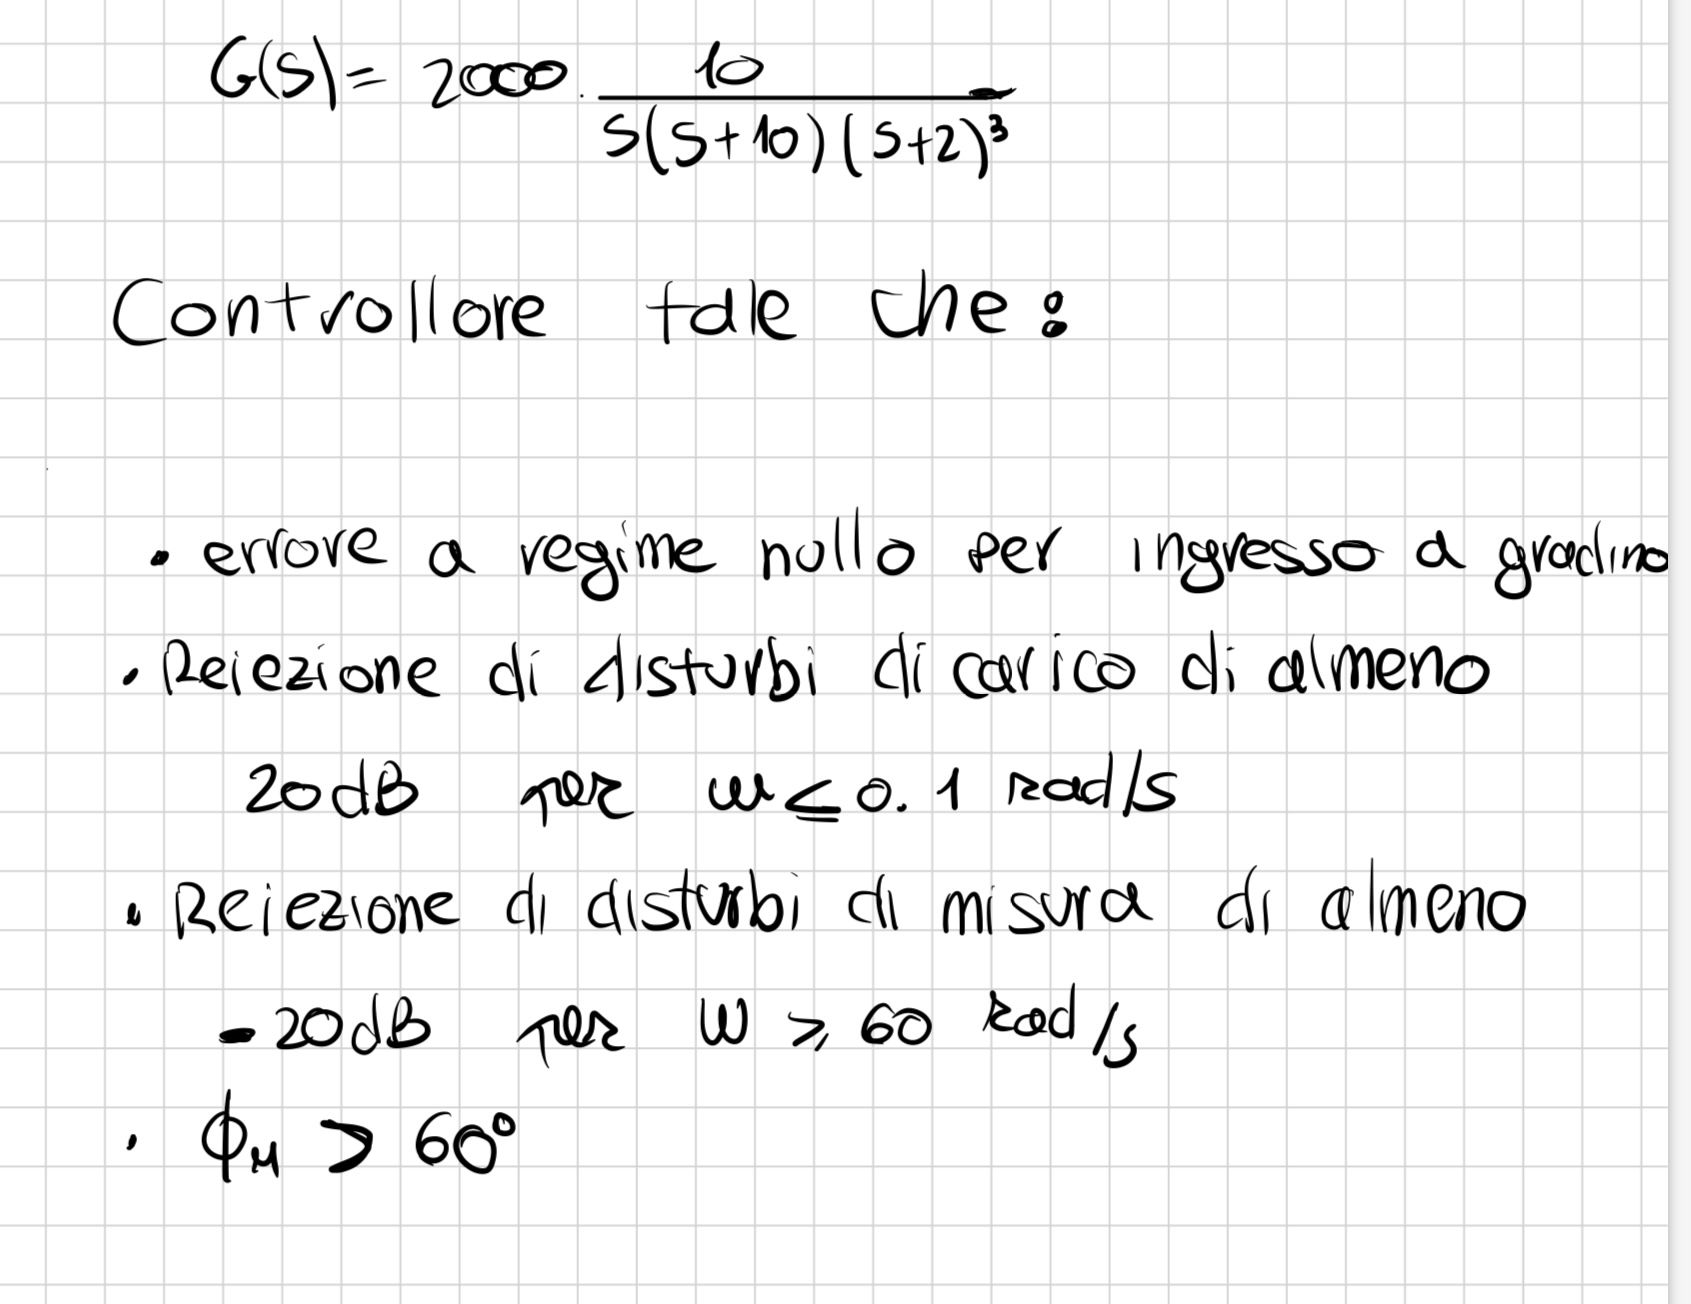 G(s) = 2000 · 10 / s(s+10)(s+2)³
Controllore tale che:
• errore a regime nullo per ingresso a gradino
• Reiezione di disturbi di carico di almeno
20dB per w ≤ 0.1 rad/s
• Reiezione di disturbi di misura di almeno
-20dB per w ≥ 60 rad/s
• ϕM > 60°